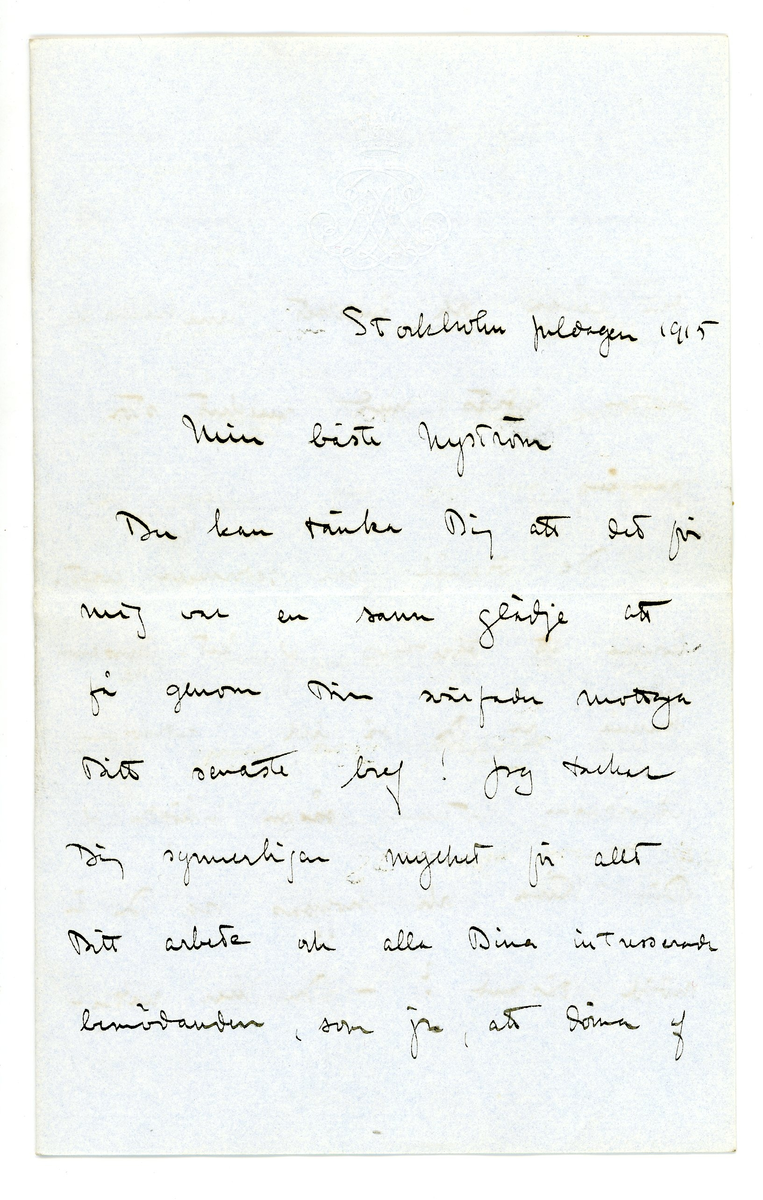 Stockholm juldagen 1915
Min bäste Nyström
Du kan tänka Dig att det för
mig var en sann glädje att
få genom Din svärfader mottaga
Ditt senaste bref! Jag tackar
Dig synnerligen mycket för allt
Ditt arbete och alla Dina intresserade
bemödanden, som ju, att döma af